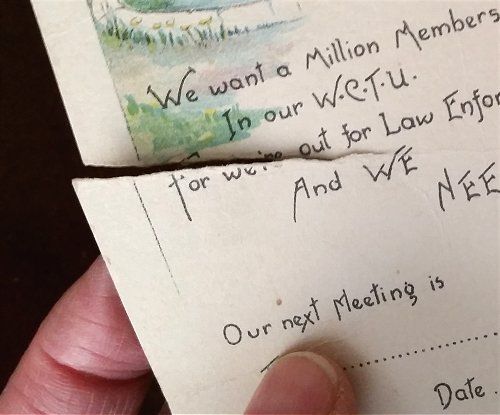 We want a Million Members
In our W.C.T.U.
For we're out for Law Enfor
And WE NEE
Our next Meeting is
Date